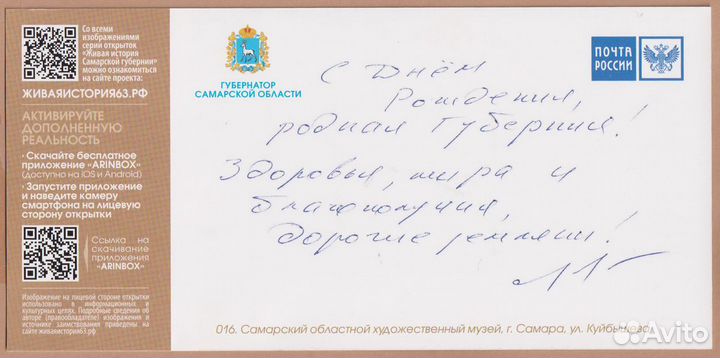 Со всеми
изображениями
серии открыток
«Живая история
Самарской губернии»
можно ознакомиться
на сайте проекта:
ЖИВАЯИСТОРИЯ63.РФ
АКТИВИРУЙТЕ
ДОПОЛНЕННУЮ
РЕАЛЬНОСТЬ
• Скачайте бесплатное
приложение «ARINBOX»
(доступно на iOS и Android)
• Запустите приложение
и наведите камеру
смартфона на лицевую
сторону открытки
Ссылка на
скачивание
приложения
"ARINBOX"
Изображение на лицевой стороне открытки
использовано в информационных и
культурных целях. Подробные сведения об
авторе (правообладателе) изображения и
источнике заимствования приведены на
сайте живаяистория63.рф
ГУБЕРНАТОР
САМАРСКОЙ ОБЛАСТИ
ПОЧТА
РОССИИ
С Днём
Рождения,
родная Губерния!
Здоровья, мира и
благополучия,
дорогие земляки!
016. Самарский областной художественный музей, г. Самара, ул. Куйбышева
Avito